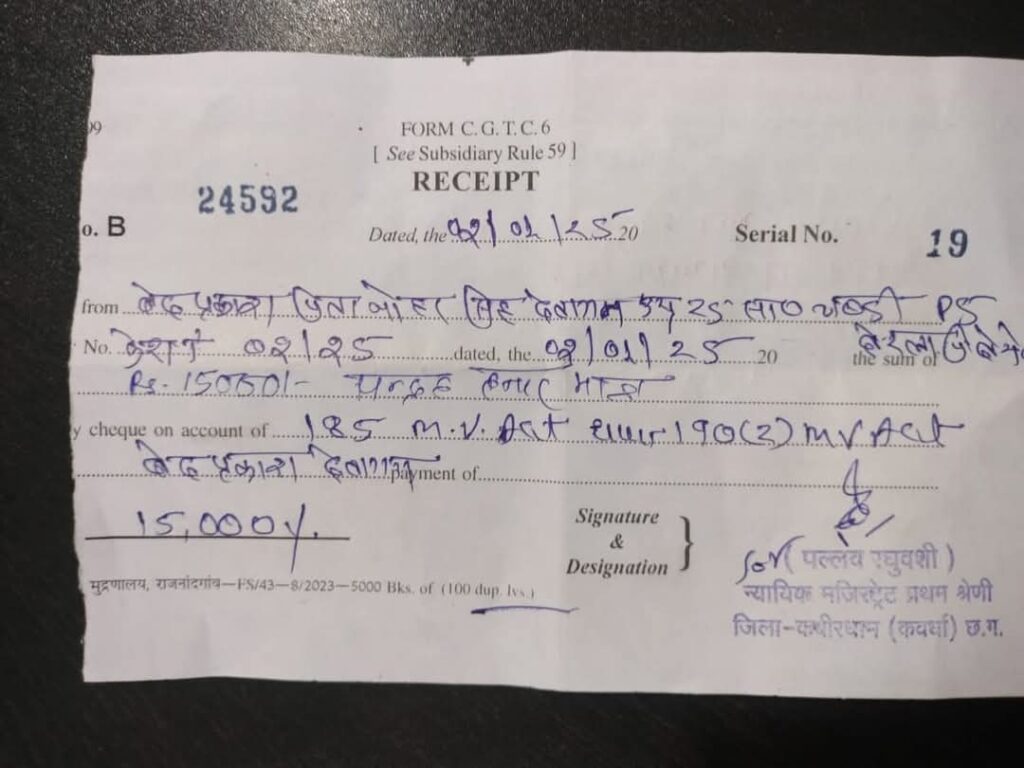 99
FORM C. G. T. C. 6
[ See Subsidiary Rule 59 ]
RECEIPT
24592
o. B
Dated, the 02/01/25 20
Serial No. 19
from वेद प्रकाश पिता सिंह देवांगन उम्र 25 सा० PS
No. 02/25 dated, the 02/01/25 20 the sum of
Rs. पन्द्रह हजार मात्र
y cheque on account of 185 M.V. Act धारा 190(2) MV Act
वेद प्रकाश देवांगन payment of
15,000/.
Signature
&
Designation
(पल्लव रघुवंशी)
न्यायिक मजिस्ट्रेट प्रथम श्रेणी
जिला-कबीरधाम (कवर्धा) छ.ग.
मुद्रणालय, राजनांदगांव—FS/43—8/2023—5000 Bks. of (100 dup. lvs.)